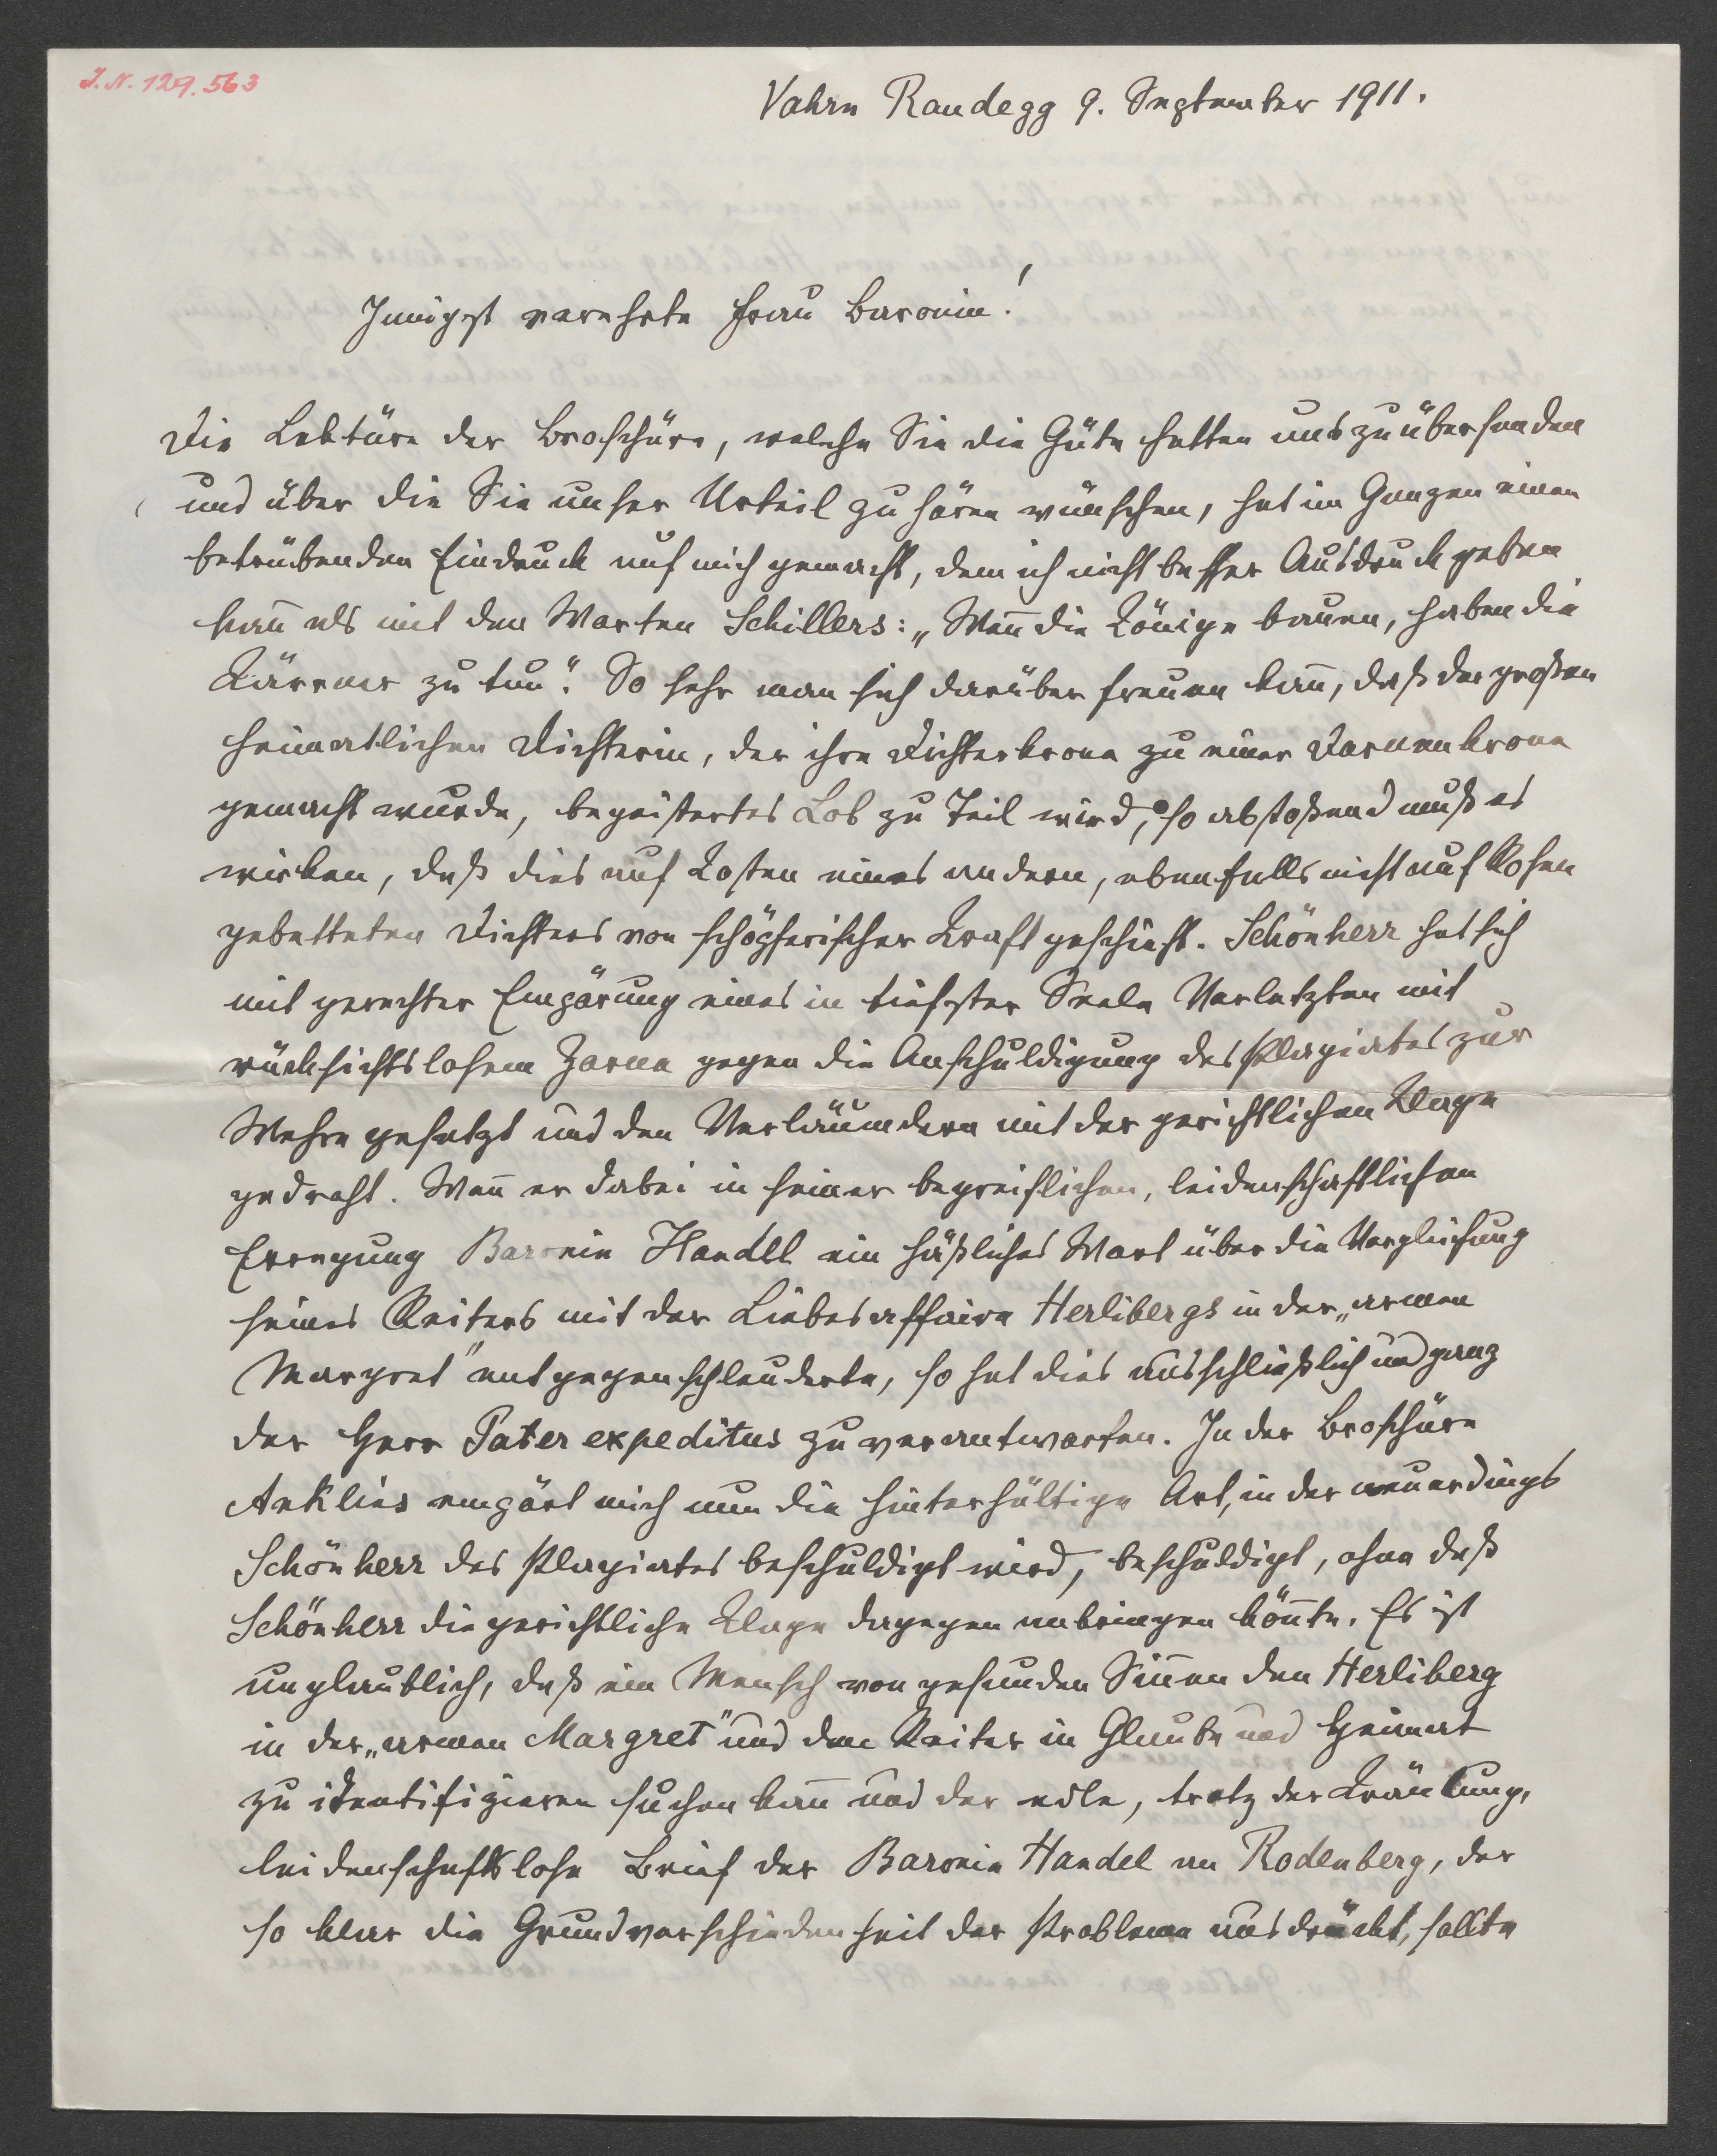 I. N. 129.563
Vahrn Randegg 9. September 1911.
Innigst verehrte Frau Baronin!
Die Lektüre der Broschüre, welche Sie die Güte hatten uns zu übersenden
und über die Sie unser Urteil zu hören wünschen, hat im Ganzen einen
betrübenden Eindruck auf mich gemacht, dem ich nicht besser Ausdruck geben
kan̄ als mit den Worten Schillers: „Wen̄ die Könige bauen, haben die
Kärrner zu tun“. So sehr man sich darüber freuen kan̄, daß der großen
heimatlichen Dichterin, der ihre Dichterkrone zu einer Dornenkrone
gemacht wurde, begeistertes Lob zu Teil wird, so abstoßend muß es
wirken, daß dies auf Kosten eines andern, ebenfalls nicht auf Rosen
gebetteten Dichters von schöpferischer Kraft geschieht. Schönherr hat sich
mit gerechter Empörung eines in tiefster Seele Verletzten mit
rücksichtslosem Zorne gegen die Anschuldigung des Plagiates zur
Wehre gesetzt und den Verläumdern mit der gerichtlichen Klage
gedroht. Wen̄ er dabei in seiner begreiflichen, leidenschaftlichen
Erregung Baronin Handel ein häßliches Wort über die Vergleichung
seines Reiters mit der Liebesaffaire Herlibergs in der „armen
Margret“ entgegenschleuderte, so hat dies ausschließlich und ganz
der Herr Pater expeditus zu verantworten. In der Broschüre
Anklins empört mich nun die hinterhältige Art, in der neuerdings
Schönherr des Plagiates beschuldigt wird, beschuldigt, ohne daß
Schönherr die gerichtliche Klage dagegen anbringen kön̄te. Es ist
unglaublich, daß ein Mensch von gesunden Sin̄en den Herliberg
in der „armen Margret“ und den Reiter in Glaube und Heimat
zu identifizieren suchen kan̄ und der edle, trotz der Kränkung,
leidenschaftslose Brief der Baronin Handel an Rodenberg, der
so klar die Grundverschiedenheit der Probleme ausdrückt, sollte